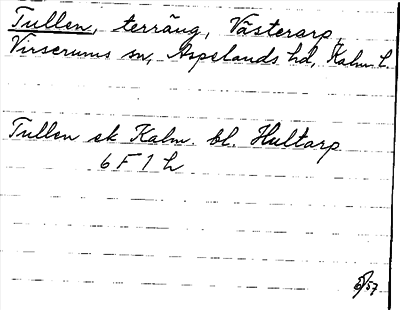 Tullen, terräng, Västerarp,
Virserums sn, Aspelands hd, Kalm. l.
Tullen ek Kalm. bl. Hultarp
6 F 1 h
57